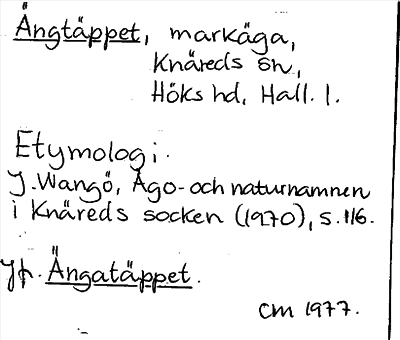 Ängtäppet, markäga,
Knäreds sn,
Höks hd, Hall. l.
Etymologi.
J. Wangö, Ägo- och naturnamnen
i Knäreds socken (1970), s. 116.
Jfr. Ängatäppet.
CM 1977.